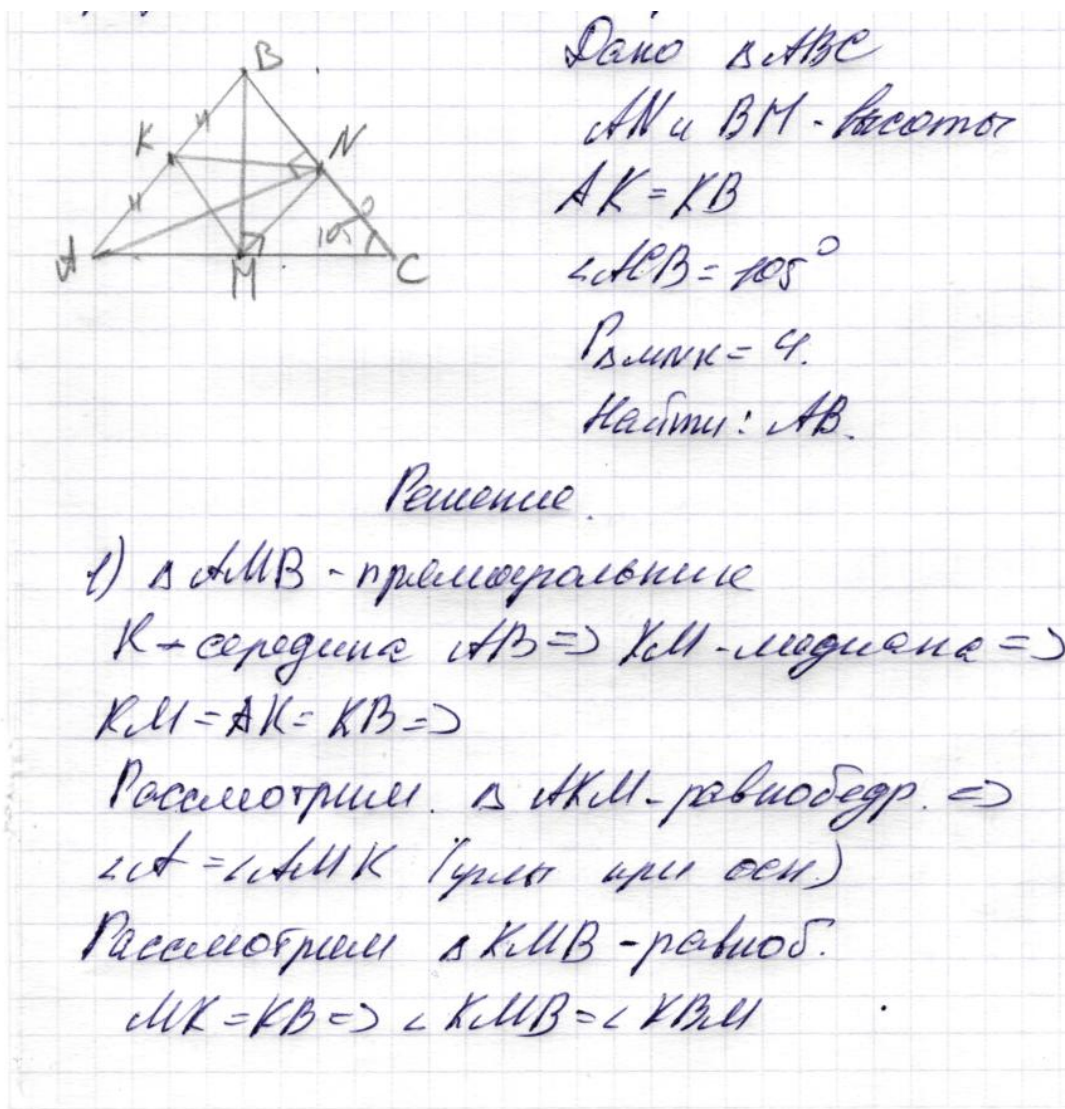 B
K
N
A
M
C
105°
Дано △ABC
AN и BM - высоты
AK = KB
∠ACB = 105°
P△MNK = 4.
Найти: AB.
Решение.
1) △AMB - прямоугольник
K - середина AB => KM - медиана =>
KM = AK = KB =>
Рассмотрим. △AKM - равнобедр. =>
∠A = ∠AMK (углы при осн.)
Рассмотрим △KMB - равноб.
MK = KB => ∠KMB = ∠KBM